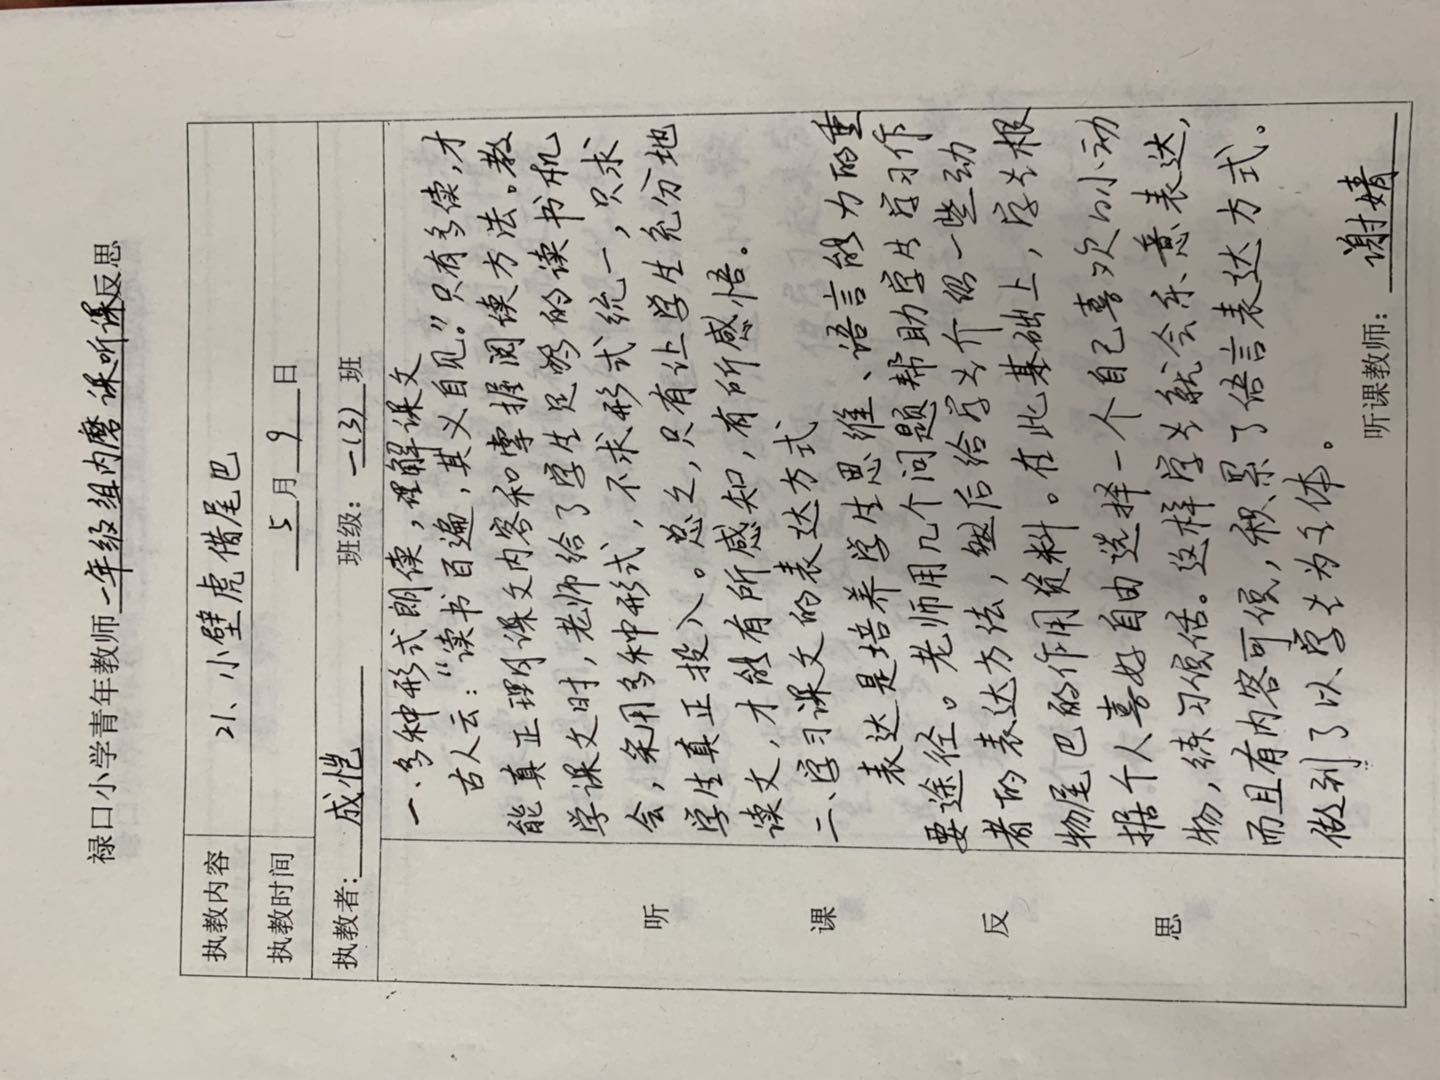 禄口小学青年教师一年级组内磨课听课反思
执教内容 21、小壁虎借尾巴
执教时间 5月9日
执教者：成恺 班级：一（3）班
听课反思
一、多种形式朗读，理解课文
古人云：“读书百遍，其义自见。”只有多读，才
能真正理解课文内容和掌握阅读方法。教
学课文时，老师给了学生足够的读书机
会，采用多种形式，不求形式统一，只求
学生真正投入。总之，只有让学生充分地
读文，才能有所感知，有所感悟。
二、学习课文的表达方式
表达是培养学生思维、语言能力的重
要途径。老师用几个问题帮助学生学习作
者的表达方法，然后给学生介绍一些动
物尾巴的作用资料。在此基础上，学生根
据个人喜好自由选择一个自己喜欢的小动
物，练习说话。这样学生就会乐意表达，
而且有内容可说，积累了语言表达方式。
做到了以学生为主体。
听课教师：谢婧